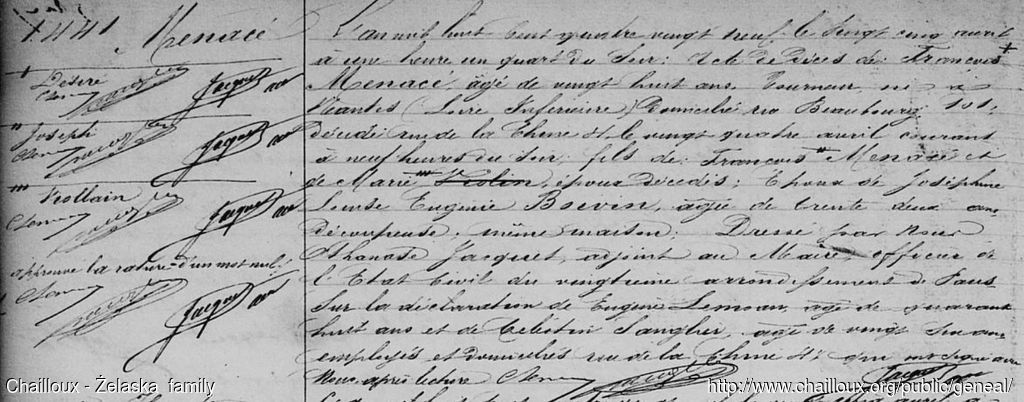 1441 Menacé
+
Désiré
"
Joseph
""
Trollain
approuve la rature d'un mot nul.
L'an mil huit cent quatre vingt neuf le vingt cinq avril
à une heure un quart du soir: Acte de décès de: François +
Menacé, âgé de vingt huit ans, Tourneur, né à
Nantes (Loire Inférieure) Domicilié rue Beaubourg 101;
décédé rue de la Chine 4, le vingt quatre avril courant
à neuf heures du soir; fils de: François " Menacé et
de Marie "" , époux décédés; Epoux de Joséphine
Louise Eugénie Boëven, âgée de trente deux ans
découpeuse, même maison; Dressé par Nous
Athanase Jacquet, adjoint au Maire, officier de
l'Etat Civil du vingtième arrondissement de Paris
Sur la déclaration de Eugène Lemoan, âgé de quarante
huit ans et de Célestin Sanglier, âgé de vingt ans
employés et domiciliés rue de la Chine 4; qui ont signé avec
Nous après lecture
Chailloux - Żelaska family
http://www.chailloux.org/public/geneal/